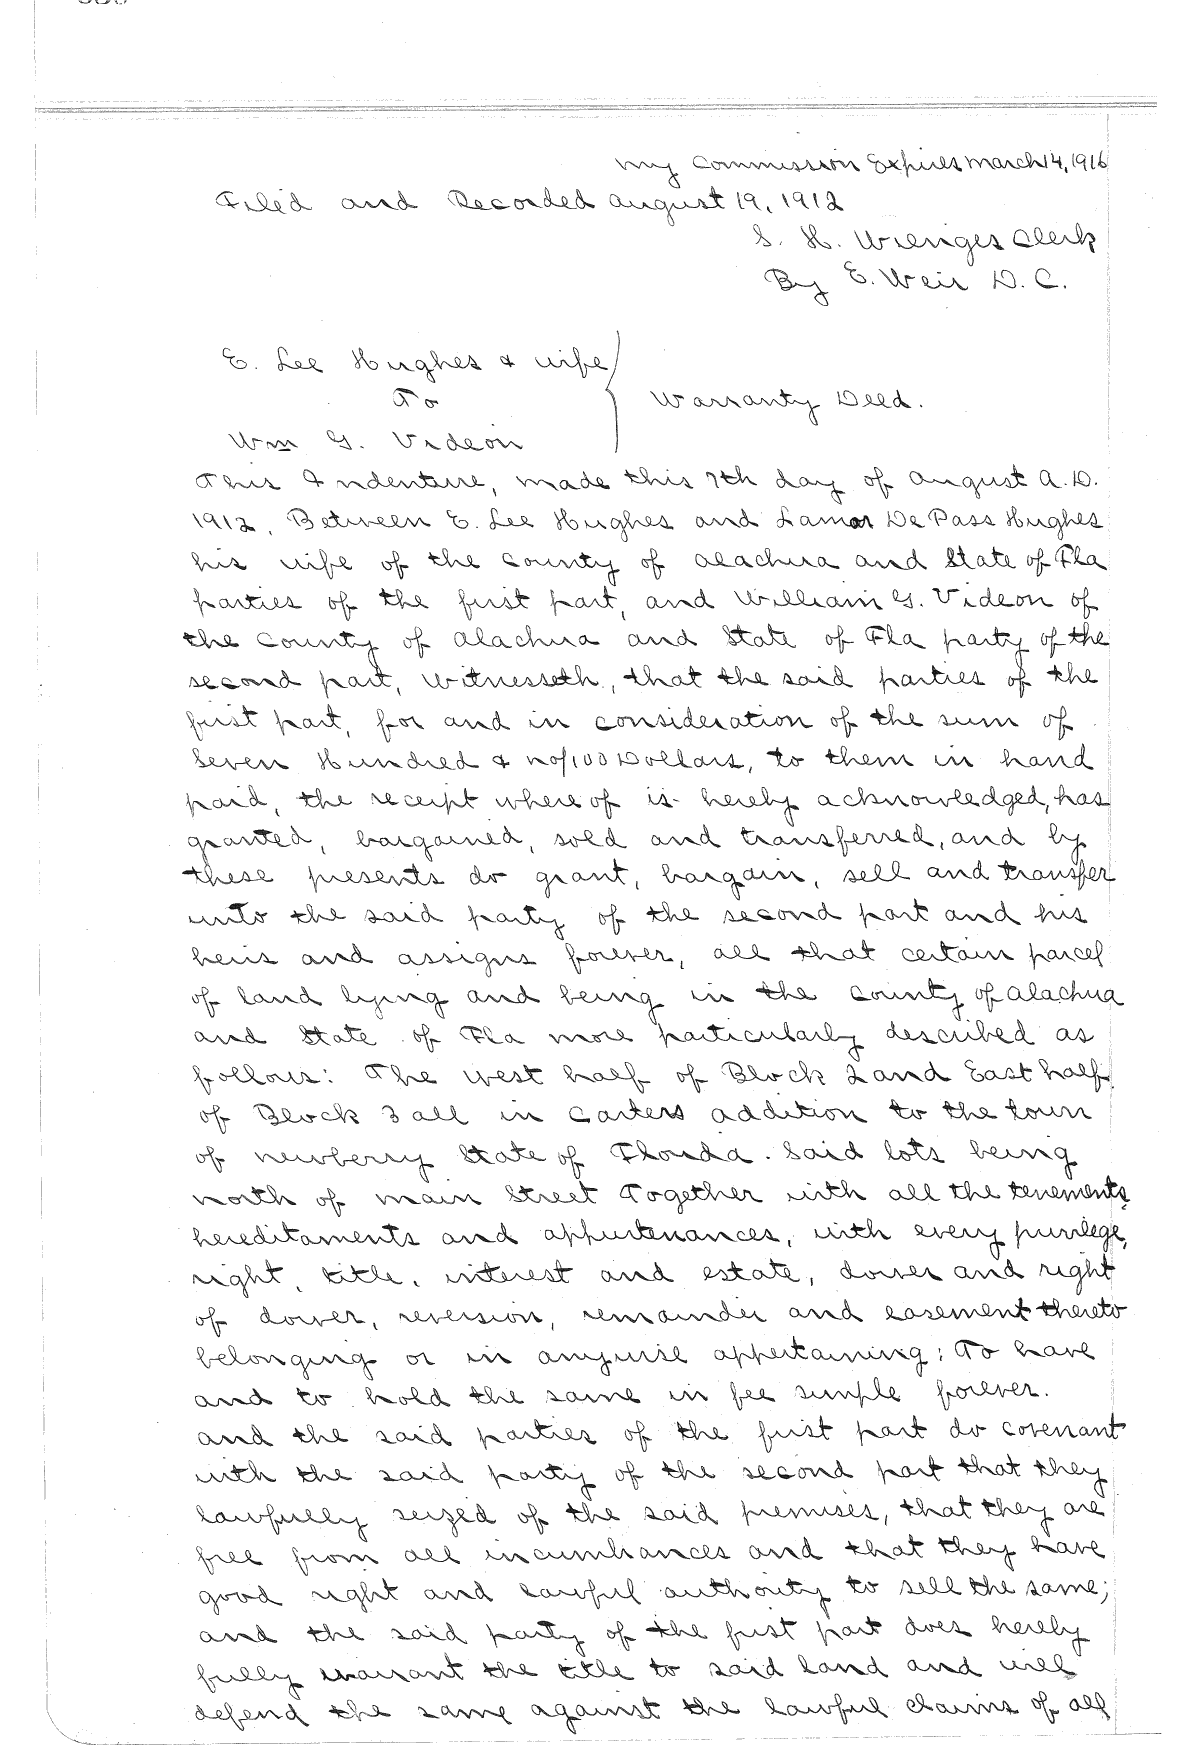 My Commission Expires March 14, 1916
Filed and Recorded August 19, 1912
S. H. Wienges Clerk
By E. Weir D. C.
E. Lee Hughes & wife
To
Warranty Deed.
Wm G. Videon
This Indenture, made this 7th day of August A.D.
1912, Between E. Lee Hughes and Lamar DePass Hughes
his wife of the County of Alachua and State of Fla
parties of the first part, and William G. Videon of
the County of Alachua and State of Fla party of the
second part, Witnesseth, that the said parties of the
first part, for and in consideration of the sum of
Seven Hundred & no/100 Dollars, to them in hand
paid, the receipt where of is hereby acknowledged, has
granted, bargained, sold and transferred, and by
these presents do grant, bargain, sell and transfer
unto the said party of the second part and his
heirs and assigns forever, all that certain parcel
of land lying and being in the County of Alachua
and State of Fla more particularly described as
follows: The west half of Block 2 and East half
of Block 3 all in Carters addition to the town
of Newberry State of Florida. Said lots being
north of Main Street Together with all the tenements,
hereditaments and appurtenances, with every privilege,
right, title, interest and estate, dower and right
of dower, reversion, remainder and easement thereto
belonging or in anywise appertaining: To have
and to hold the same in fee simple forever.
and the said parties of the first part do covenant
with the said party of the second part that they
lawfully seized of the said premises, that they are
free from all incumbances and that they have
good right and lawful authority to sell the same;
and the said party of the first part does hereby
fully warrant the title to said land and will
defend the same against the lawful claims of all